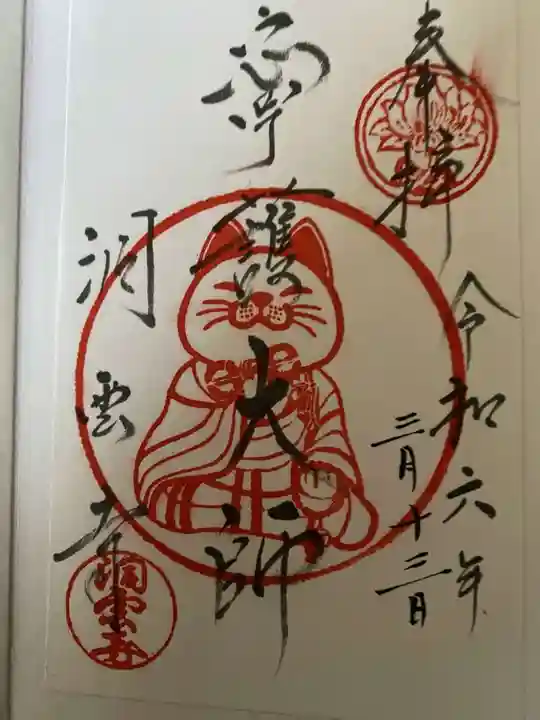 奉拝
令和六年
三月十三日
寧護大師
洞雲寺
洞雲寺